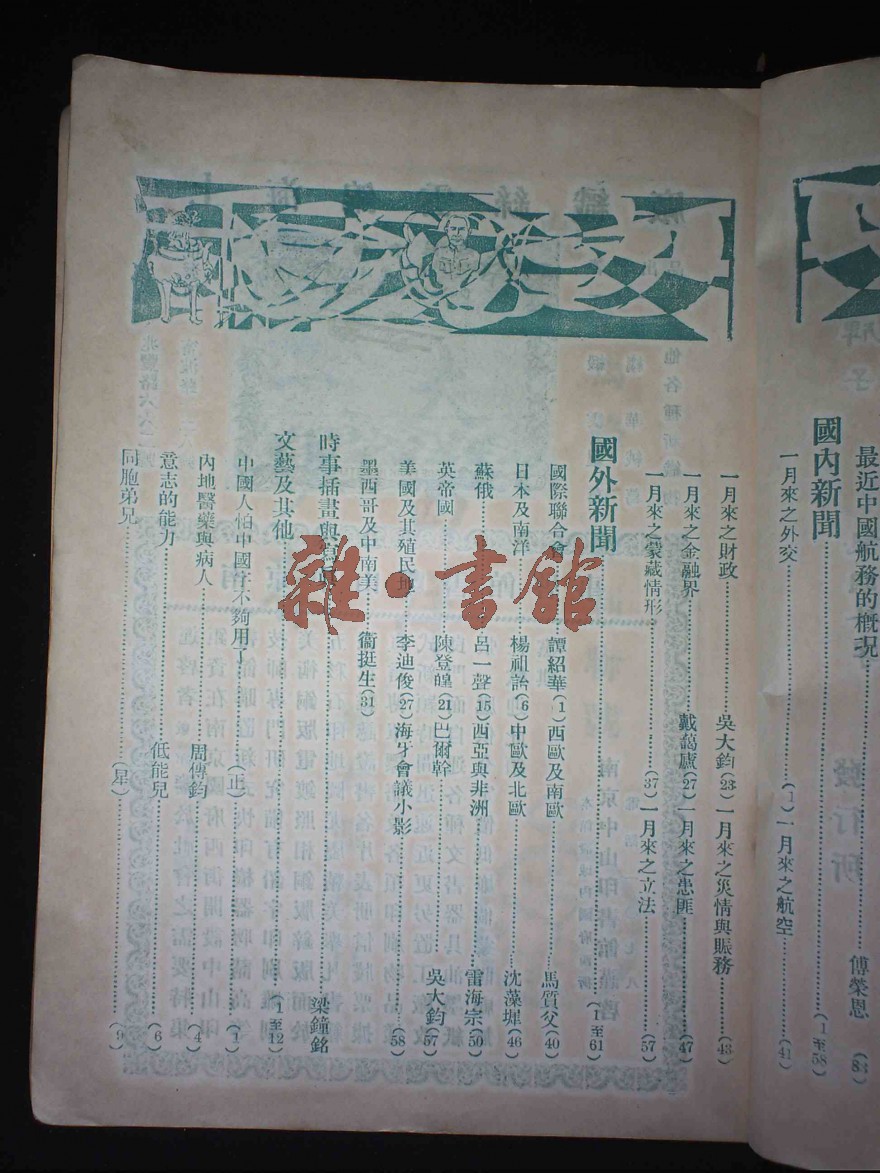 最近中國航務的概況……傅榮恩
國內新聞……(1至58)
一月來之外交……(1)一月來之航空……(41)
一月來之財政……吳大鈞(23)一月來之災情與賑務……(43)
一月來之金融界……戴藹廬(27)一月來之患匪……(47)
一月來之蒙藏情形……(37)一月來之立法……(57)
國外新聞……(1至61)
國際聯合會……譚紹華(1)西歐及南歐……馬質父(40)
日本及南洋……楊祖詒(6)中歐及北歐……沈藻墀(46)
蘇俄……呂一聲(15)西亞與非洲……雷海宗(50)
英帝國……陳登皥(21)巴爾幹……吳大鈞(57)
美國及其殖民地……李迪俊(27)海牙會議小影……(58)
墨西哥及中南美……衞挺生(31)
時事插畫與……梁鐘銘
文藝及其他……(1至12)
中國人怕中國字不夠用了……(止)……(1)
內地醫藥與病人……周傳鈞……(4)
意志的能力……低能兒……(6)
同胞弟兄……(星)……(9)
雜·書館